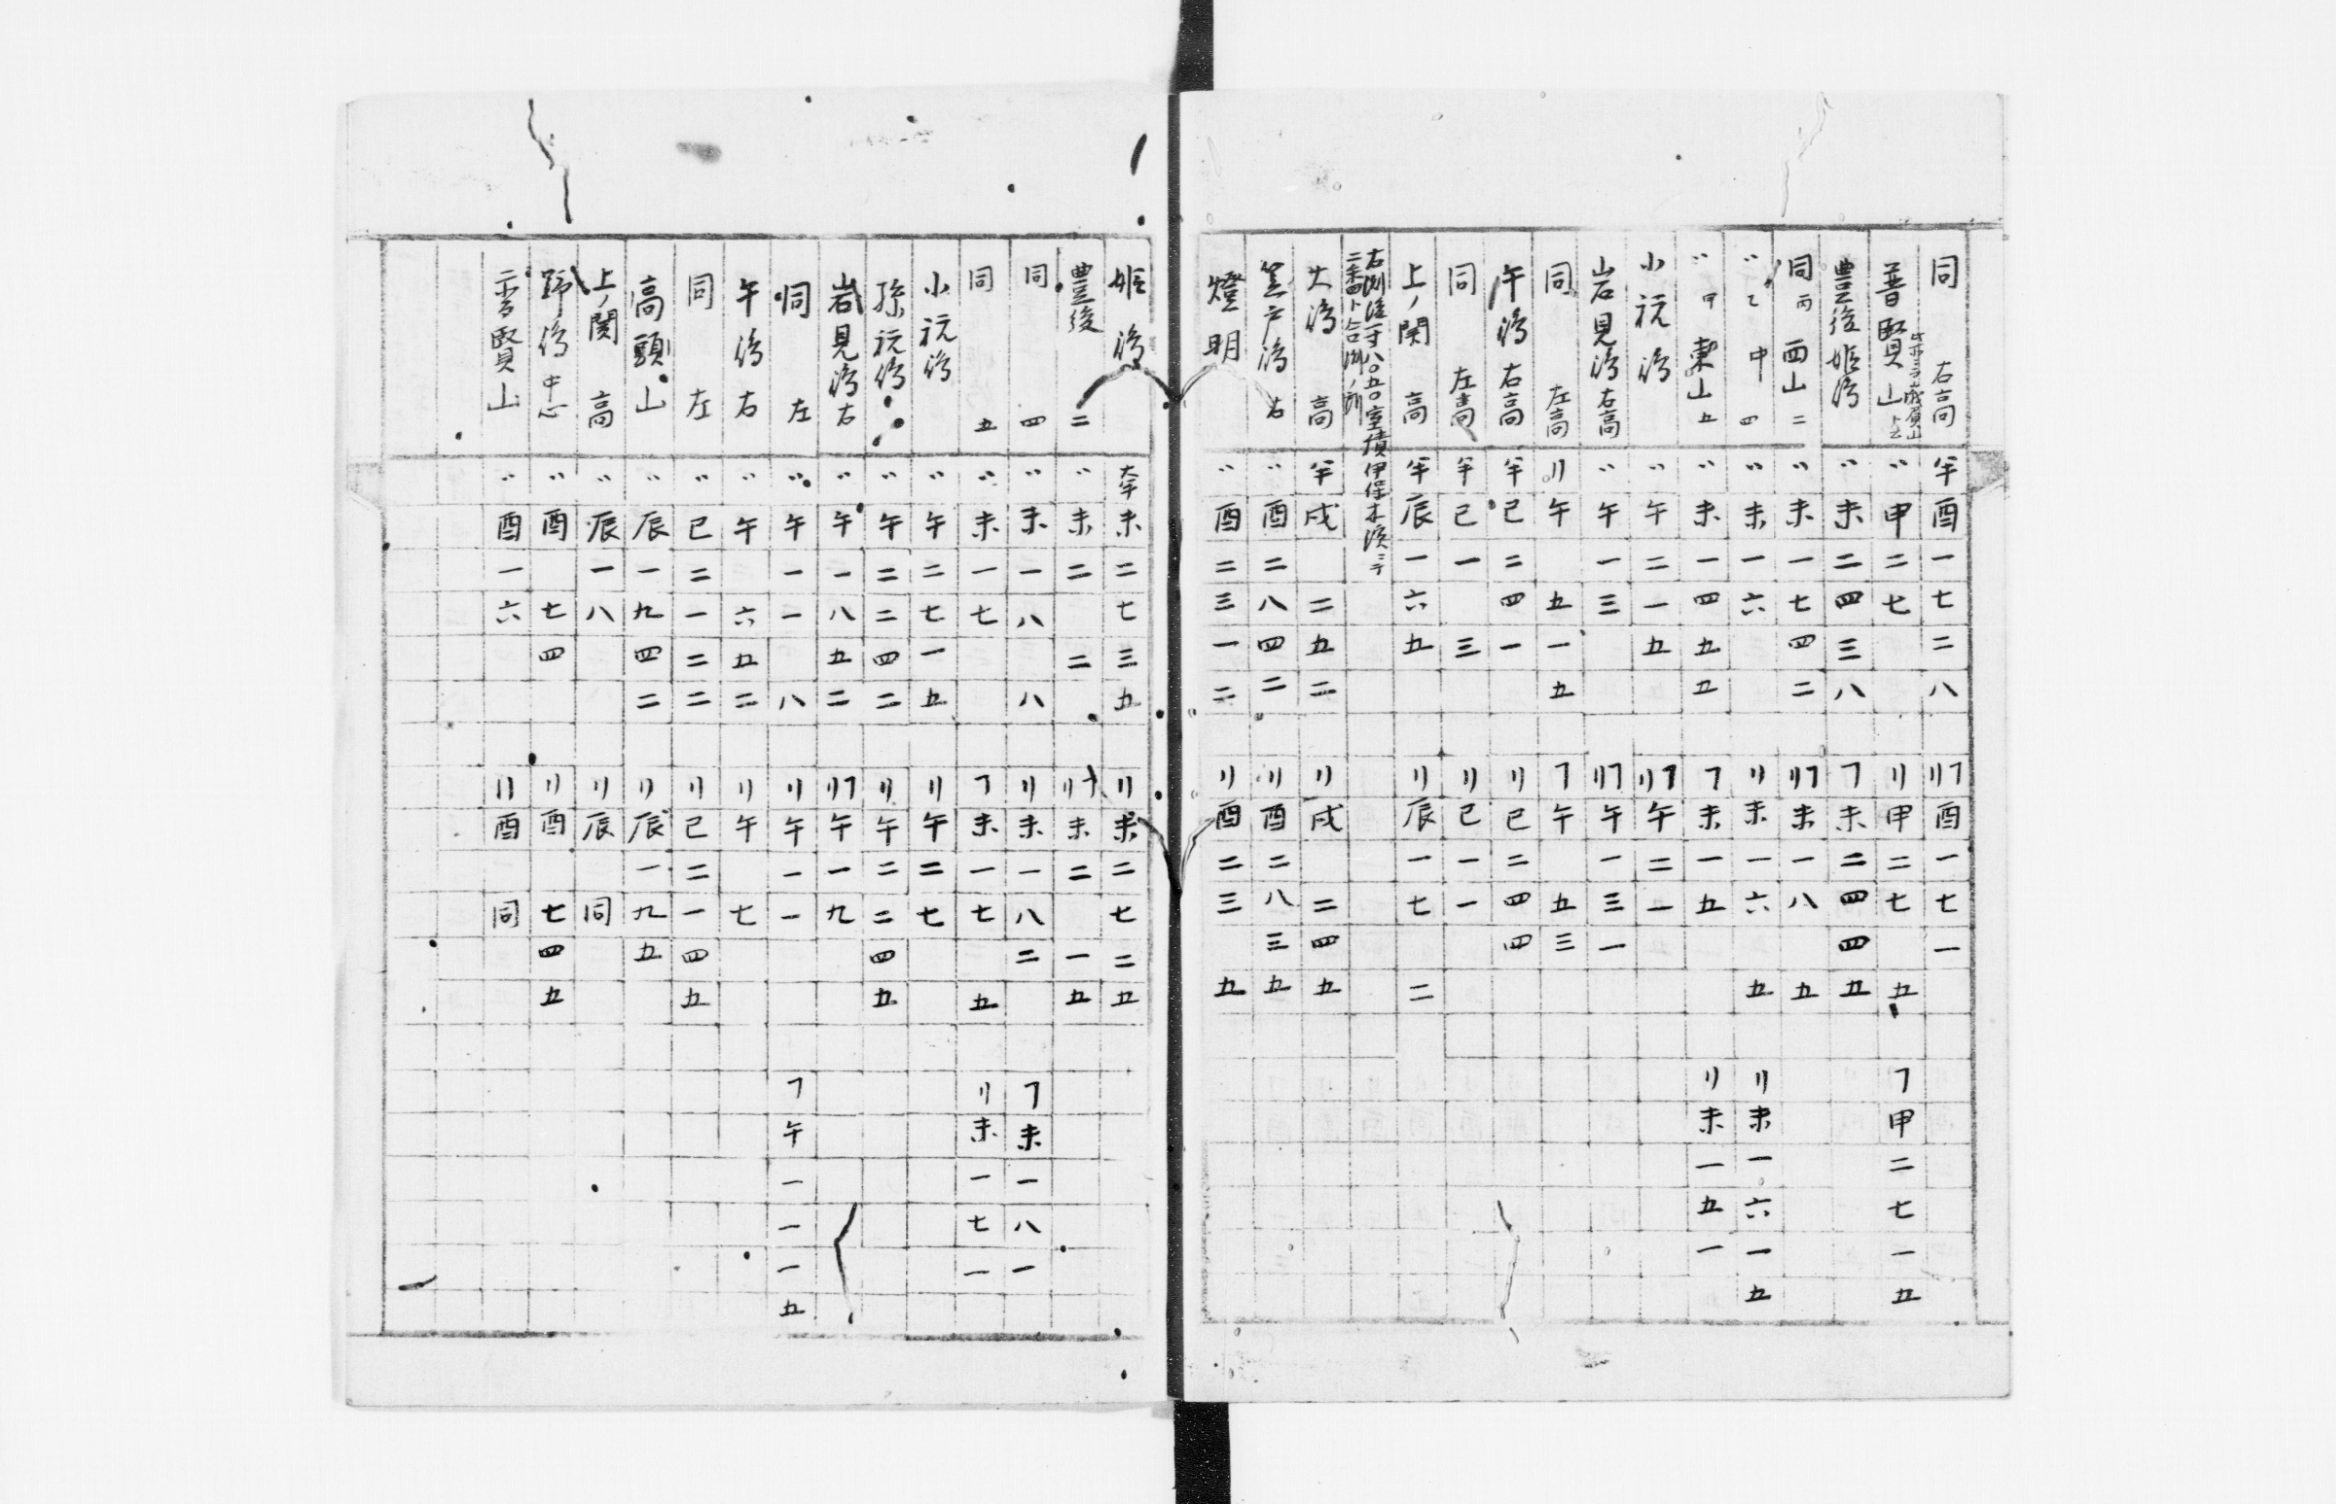 同 右高 半酉一七二八 リフ酉一七一
普賢山 〃申二七 リ申二七 五 フ申二七一五
豊後姫島 〃未二四三八 フ未二四四五
同 丙 西山 二 〃未一七四二 リフ未一八 五
〃 乙 中 四 〃未一六 リ未一六 五 リ未一六一五
〃 甲 東山 五 〃未一四五五 フ未一五 リ未一五一
小祝島 〃午二一五 リフ午二一
岩見島 右高 〃午一三 リフ午一三一
同 左高 リ午 五一五 フ午 五三
午島 右高 半巳二四一 リ巳二四四
同 左高 半巳一 三 リ巳一一
上ノ関 高 半辰一六五 リ辰一七 二
室積伊保木浜ニテ
大島 高 半戌 二五二 リ戌 二四五
笠戸島 右 〃酉二八四二 リ酉二八三五
燈明 〃酉二三一二 リ酉二三 五
姫島 未二七三五 リ未二七二五
豊後 二 〃未二 二 未二 一五
同 四 〃未一八 八 リ未一八二 フ未一八一
同 五 〃未一七 フ未一七 五 リ未一七一
小祝島 〃午二七一五 リ午二七
孫祝島 〃午二二四二 リ午二二四五
岩見島 右 〃午一八五二 リフ午一九
同 左 〃午一一 八 リ午一一 フ午一一一五
午島 右 〃午 六五二 リ午 七
同 左 〃巳二一二二 リ巳二一四五
高頭山 〃辰一九四二 リ辰一九五
上ノ関 高 〃辰一八 リ辰 同
島 中心 〃酉 七四 リ酉 七四五
賢山 〃酉一六 リ酉 同